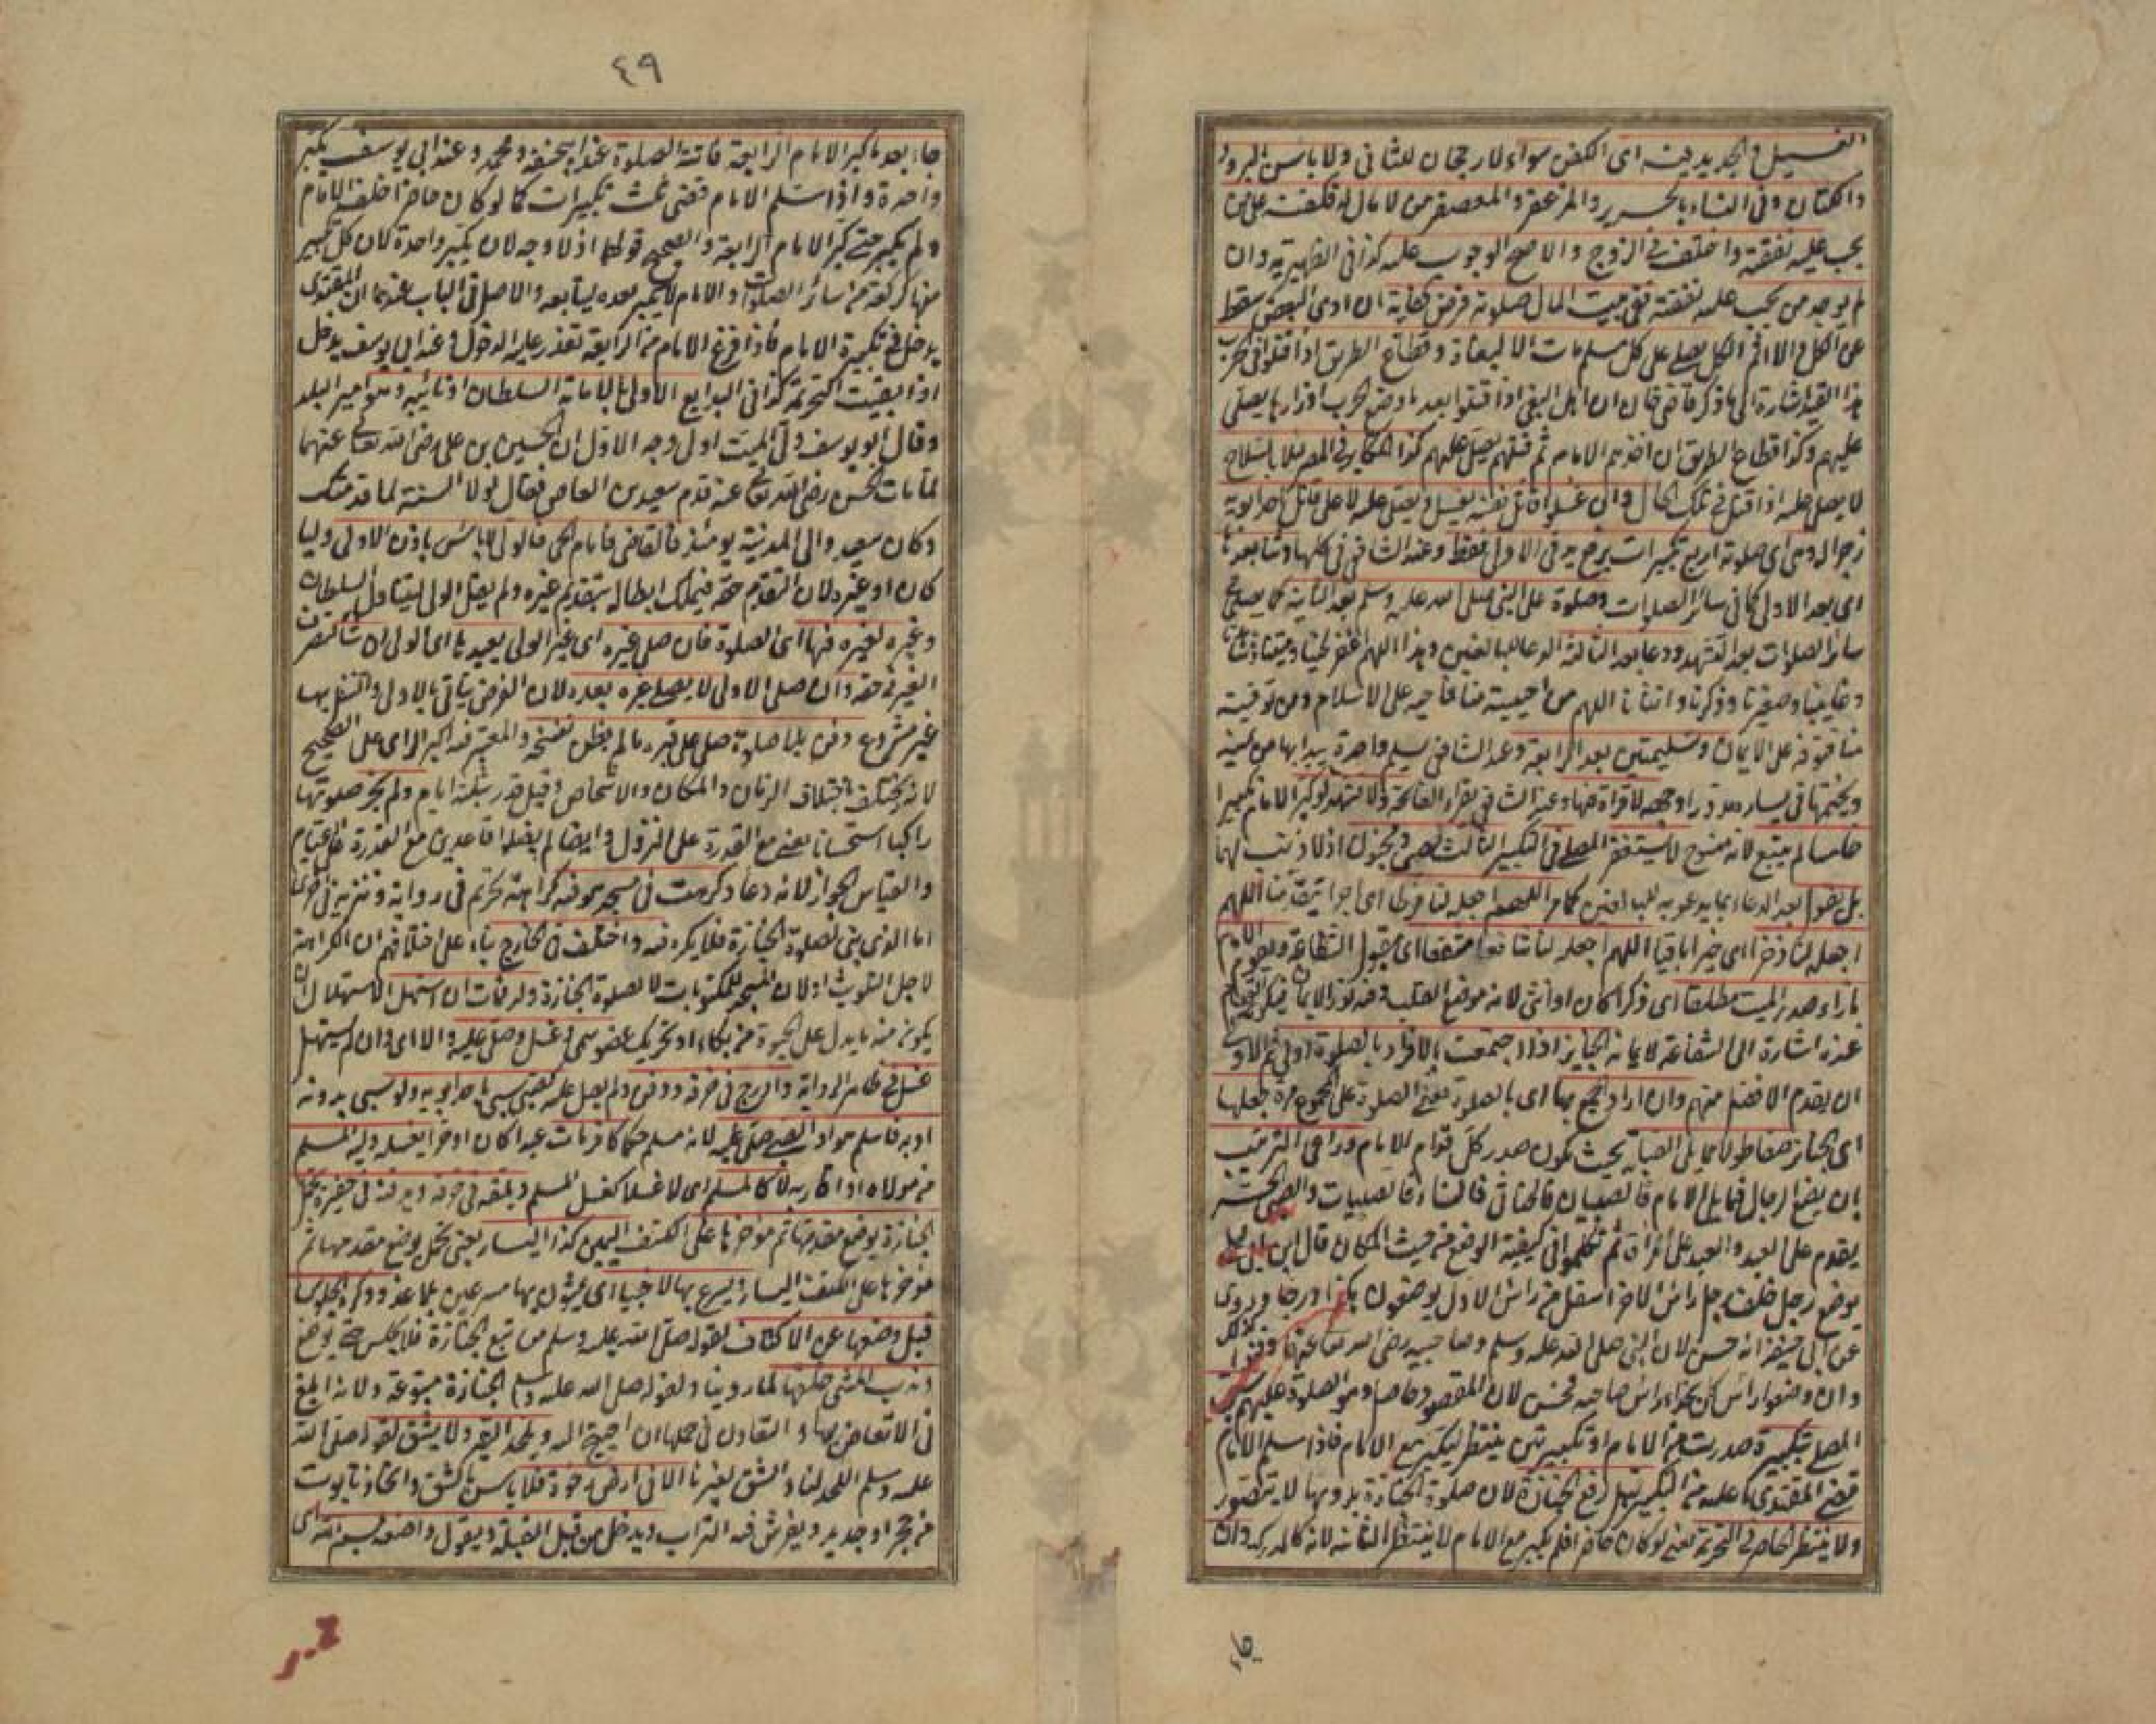 الغسيل والجديد فيه اى الكفن سواء لا رجحان للثانى ولا بأس بالبرود
والكتان وفى النساء بالحرير والمزعفر والمعصفر من لا مال له فكفنه على من
يجب عليه نفقته واختلف فى الزوج والاصح الوجوب عليه كذا فى الظهيرية وان
لم يوجد من يجب عليه نفقته ففى بيت المال صلوته فرض كفاية ان ادى البعض سقط
عن الكل والا اثم الكل يصلى على كل مسلم مات الا البغاة وقطاع الطريق اذا قتلوا فى الحرب
هذا القيد اشارة الى ما ذكر قاضى خان ان اهل البغى اذا قتلوا بعد ما وضع الحرب اوزارها يصلى
عليهم وكذا قطاع الطريق ان اخذهم الامام ثم قتلهم يصلى عليهم كذا المكابر فى المصر ليلا بالسلاح
لا يصلى عليه اذا قتل فى تلك الحال وان غسلوا قاتل نفسه يغسل ويصلى عليه لا على قاتل احد ابويه
زجرا له وهى اى صلوته اربع تكبيرات يرفع يديه فى الاولى فقط وعند الشافعى فى كلها وثناء بعدها
اى بعد الاولى كما فى سائر الصلوات وصلوة على النبى صلى الله عليه وسلم بعد الثانية كما يصلى فى
سائر الصلوات بعد التشهد ودعا بعد الثالثة الدعاء للبالغين هذا اللهم اغفر لحينا وميتنا وشاهدنا
وغائبنا وصغيرنا وذكرنا وانثانا اللهم من احييته منا فاحيه على الاسلام ومن توفيته
منا فتوفه على الايمان وتسليمتين بعد الرابعة وعند الشافعى يسلم واحدة يبدأ بها من يمينه
ويختمها فى يساره مدورا وجهه لا قراءة فيها وعند الشافعى يقرأ الفاتحة ولا تشهد لو كبر الامام تكبيرا
خامسا لم يتبع لانه منسوخ لا يستغفر المصلى فى التكبير الثالث لصبى ومجنون اذ لا ذنب لهما
بل يقول بعد الدعاء بما يدعو به للبالغين كما مر اللهم اجعله لنا فرطا اى اجرا يتقدمنا اللهم
اجعله لنا ذخرا اى خيرا باقيا اللهم اجعله لنا شافعا مشفعا اى مقبول الشفاعة ويقوم الامام
بازاء صدر الميت مطلقا اى ذكرا كان او انثى لانه موضع القلب وفيه نور الايمان فيكون القيام
عنده اشارة الى الشفاعة لايمانه الجنايز اذا اجتمعت فالافراد بالصلوة اولى ثم الاولى
ان يقدم الافضل منهم وان اراد الجمع بها اى بالصلوة يعنى الصلوة على المجموع مرة جعلها
اى الجنائز صفا طولا مما يلى القبلة بحيث يكون صدر كل قدام الامام وراعى الترتيب
بان يضع الرجال مما يلى الامام فالصبيان فالخناثى فالنساء فالصبيات والصبى الحر
يقدم على العبد والعبد على المرأة ثم تكلموا فى كيفية الوضع من حيث المكان قال ابن ابى ليلى
يوضع رجل خلف رجل رأس الاخر اسفل من رأس الاول يوضعون هكذا درجا وروى
عن ابى حنيفة انه حسن لان النبى صلى الله عليه وسلم وصاحبيه رضى الله عنهما دفنوا كذلك
وان وضعوا رأس كل بحذاء رأس صاحبه فحسن لان المقصود حاصل وهو الصلوة عليهم سبق
المصلى بتكبيرة صدرت من الامام او تكبيرتين ينتظر ليكبر مع الامام فاذا سلم الامام
قضى المقتدى ما عليه من التكبير قبل رفع الجنازة لان صلوة الجنازة بدونها لا يتصور
ولا ينتظر الحاضر فى التحريمة يعنى لو كان حاضرا فلم يكبر مع الامام لا ينتظر الثانية لانه كالمدرك وان
٤٩
جاء بعد ما كبر الامام الرابعة فاتته الصلوة عند ابى حنيفة ومحمد وعند ابى يوسف يكبر
واحدة واذا سلم الامام قضى ثلث تكبيرات كما لو كان حاضرا خلف الامام
ولم يكبر حتى كبر الامام الرابعة والصحيح قولهما اذ لا وجه لان يكبر واحدة لان كل تكبير
منها كركعة من سائر الصلوات والامام لا يكبر بعده ليتابعه والاصل فى الباب عندهما ان المقتدى
يدخل فى تكبيرة الامام فاذا فرغ الامام من الرابعة تعذر عليه الدخول وعند ابى يوسف يدخل
اذا بقيت التحريمة كذا فى البدايع الاولى بالامامة السلطان او نائبه وهو امير البلد
وقال ابو يوسف ولى الميت اولى وجه الاول ان الحسين بن على رضى الله تعالى عنهما
لما مات الحسن رضى الله تعالى عنه قدم سعيد بن العاص فقال لولا السنة لما قدمتك
وكان سعيد والى المدينة يومئذ فالقاضى فامام الحى فالولى لا بأس باذن الاولى وليا
كان او غيره لان التقدم حقه فيملك ابطاله بتقديم غيره ولم يقل الولى ليتناول السلطان
وغيره لغيره فيها اى الصلوة فان صلى غيره اى غير الولى يعيدها اى الولى ان شاء لتصرف
الغير فى حقه وان صلى الاولى لا يصلى غيره بعده لان الفرض يتأتى بالاولى والتنفل بها
غير مشروع دفن بلا صلوة صلى على قبره ما لم يظن تفسخه والمعتبر فيه اكبر الراى على الصحيح
لانه يختلف باختلاف الزمان والمكان والاشخاص وقيل قدر بثلثة ايام ولم يجز صلوتها
راكبا استحسانا يعنى مع القدرة على النزول وايضا لم يصلوا قاعدين مع القدرة على القيام
والقياس الجواز لانه دعاء وكرهت فى مسجد هو فيه كراهة تحريم فى رواية وتنزيه فى اخرى
اما الذى بنى لصلوة الجنازة فلا يكره فيه واختلف فى الخارج بناء على اختلافهم ان الكراهة
لاجل التلويث او لان المسجد للمكتوبات لا لصلوة الجنازة ولد فمات ان استهل الاستهلال ان
يكون منه ما يدل على الحيوة من بكاء او تحريك عضو سمى وغسل وصلى عليه والا اى وان لم يستهل
غسل فى ظاهر الرواية وادرج فى خرقة ودفن ولم يصل عليه كصبى سبى باحد ابويه ولو سبى بدونه
او به فاسلم هو او الصبى صلى عليه لانه مسلم حكما كافر مات عبدا كان او حرا يغسله وليه المسلم
من مولاه او اقاربه لا كالمسلم اى لا غسلا كغسل المسلم ويلفه فى خرقة ويدفنه فى حفيرة يحمل
الجنازة بوضع مقدمها ثم مؤخرها على الكتف اليمين كذا اليسار يعنى يحمل بوضع مقدمها ثم
مؤخرها على الكتف اليسار ويسرع بها لا خببا اى يمشون بها مسرعين بلا عدو وكره الجلوس
قبل وضعها عن الاكتاف لقوله صلى الله عليه وسلم من تبع الجنازة فلا يجلس حتى يوضع
وندب المشى خلفها لما روينا ولقوله صلى الله عليه وسلم الجنازة متبوعة ولانه ابلغ
فى الاتعاظ بها والتعاون فى حملها ان احتيج اليه ويلحد القبر ولا يشق لقوله صلى الله
عليه وسلم اللحد لنا والشق لغيرنا الا فى ارض رخوة فلا بأس بالشق واتخاذ تابوت
من حجر او حديد ويفرش فيه التراب ويدخل من قبل القبلة ويقول واضعه بسم الله اى